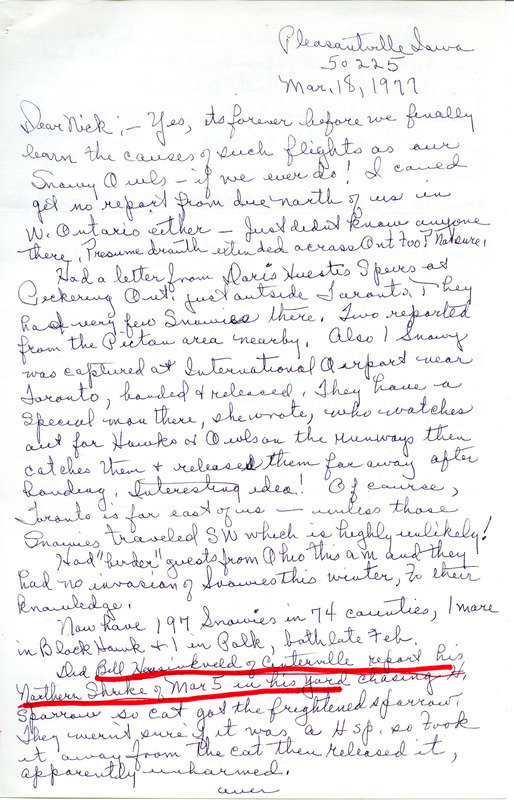 Pleasantville Iowa
50225
Mar. 18, 1977
Dear Nick; — Yes, its forever before we finally
learn the causes of such flights as our
Snowy Owls — if we ever do! I could
get no report from due north of us in
W. Ontario either — Just didn't know anyone
there. Presume drouth extended across Ont too? Not sure.
Had a letter from Doris Huestis Speirs at
Pickering Ont. just outside Toronto. They
had very few Snowies there. Two reported
from the Picton area nearby. Also 1 Snowy
was captured at International Airport near
Toronto, banded & released. They have a
special man there, she wrote, who watches
out for Hawks & Owls on the runways then
catches them & released them far away after
banding. Interesting idea! Of course,
Toronto is far east of us — unless those
Snowies traveled SW which is highly unlikely!
Had "birder" guests from Ohio this am and they
had no invasion of Snowies this winter, to their
knowledge.
Now have 197 Snowies in 74 counties, 1 more
in Black Hawk & 1 in Polk, both late Feb.
Did Bill of Centerville report his
Northern Shrike of Mar 5 in his yard chasing H.
Sparrow so cat got the frightened sparrow.
They weren't sure if it was a H sp. so took
it away from the cat then released it,
apparently unharmed.
over